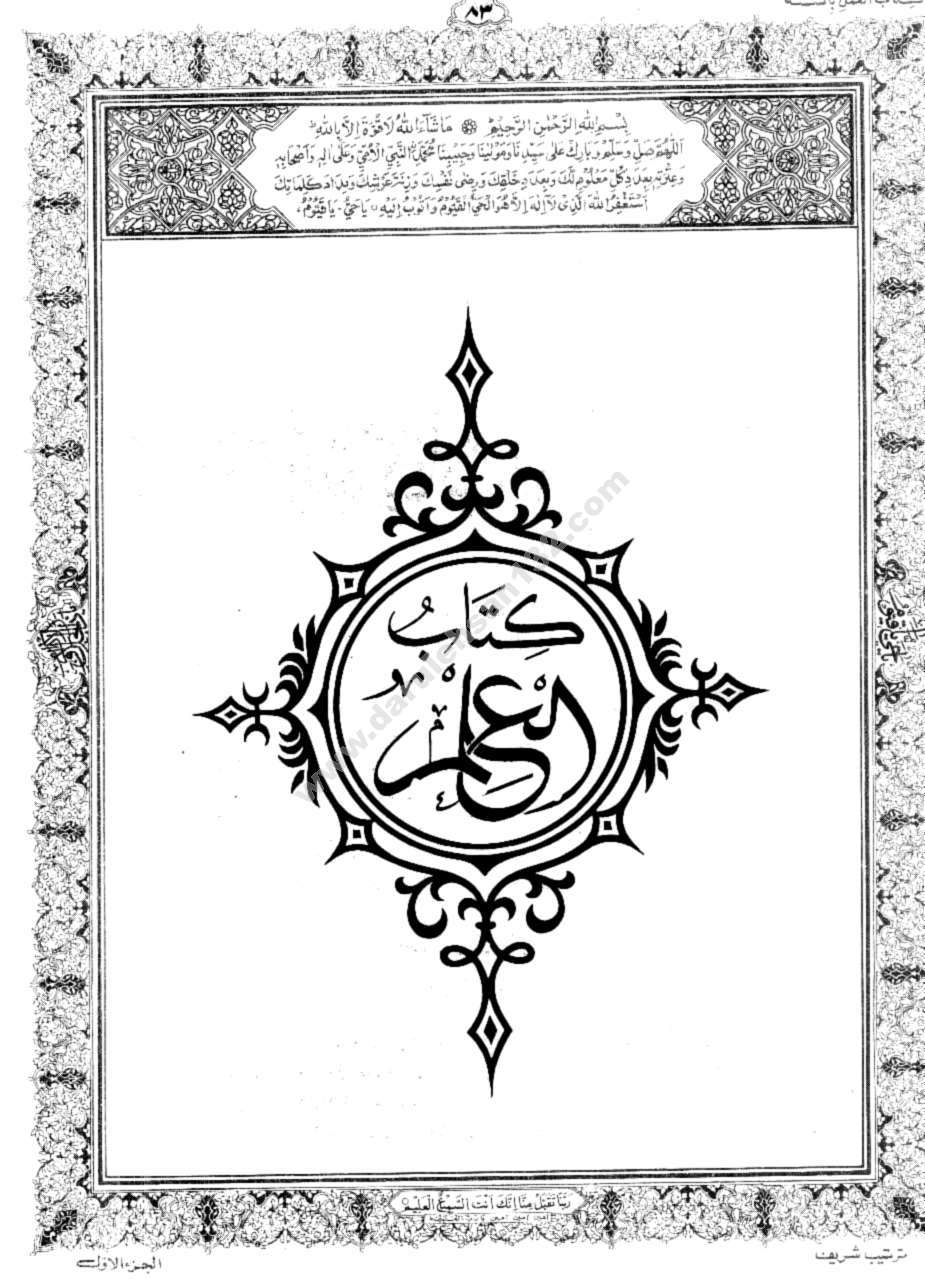 ۸۳
بِسْمِ اللهِ الرَّحْمٰنِ الرَّحِيْمِ مَا شَآءَ اللهُ لَا قُوَّةَ اِلَّا بِاللهِ
اَللّٰهُمَّ صَلِّ وَسَلِّمْ وَبَارِكْ عَلٰى سَيِّدِنَا وَمَوْلٰينَا وَحَبِيْبِنَا مُحَمَّدِ النَّبِيِّ الْاُمِّيِّ وَعَلٰى اٰلِهٖ وَاَصْحَابِهٖ
وَعِتْرَتِهٖ بِعَدَدِ كُلِّ مَعْلُوْمٍ لَّكَ وَبِعَدَدِ خَلْقِكَ وَرِضٰى نَفْسِكَ وَزِنَةِ عَرْشِكَ وَمِدَادِ كَلِمَاتِكَ
اَسْتَغْفِرُ اللهَ الَّذِىْ لَآ اِلٰهَ اِلَّا هُوَ الْحَىُّ الْقَيُّوْمُ وَاَتُوْبُ اِلَيْهِ يَا حَىُّ يَا قَيُّوْمُ
كِتَابُ
الْعِلْمِ
www.darulehsan182.com
رَبَّنَا تَقَبَّلْ مِنَّا اِنَّكَ اَنْتَ السَّمِيْعُ الْعَلِيْمُ
ترتیب شریف
الجزء الاول